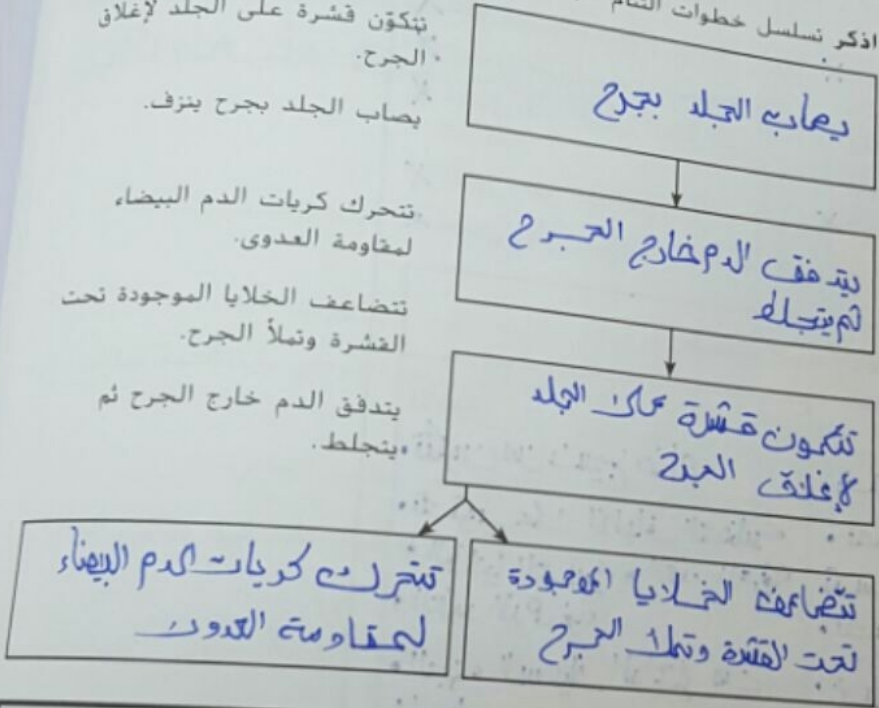 اذكر تسلسل خطوات التئام
تتكوّن قشرة على الجلد لإغلاق
الجرح.
يصاب الجلد بجرح ينزف.
تتحرك كريات الدم البيضاء
لمقاومة العدوى.
تتضاعف الخلايا الموجودة تحت
القشرة وتملأ الجرح.
يتدفق الدم خارج الجرح ثم
يتجلط.
يصاب الجلد بجرح
يتدفق الدم خارج الجرح
ثم يتجلط
تتكون قشرة على الجلد
لإغلاق الجرح
تتضاعف الخلايا الموجودة
تحت القشرة وتملأ الجرح
تتحرك كريات الدم البيضاء
لمقاومة العدوى